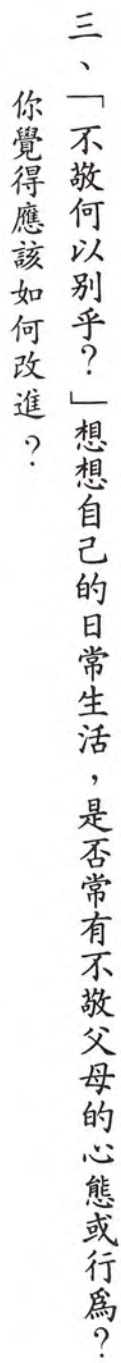 三、「不敬何以別乎？」想想自己的日常生活，是否常有不敬父母的心態或行為？
你覺得應該如何改進？